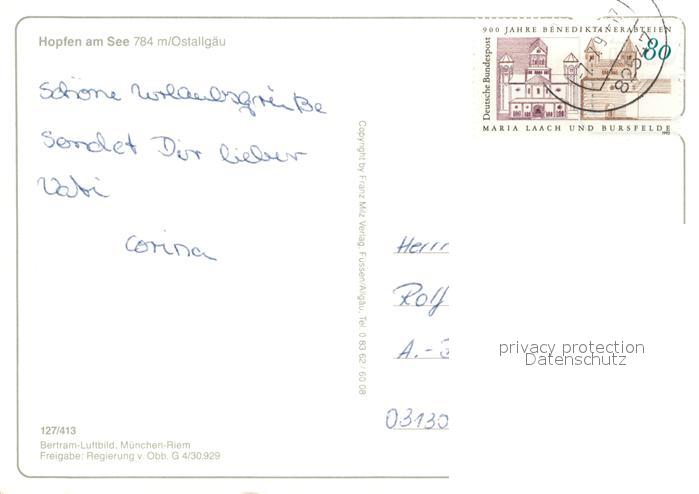 Hopfen am See 784 m/Ostallgäu
900 JAHRE BENEDIKTINERABTEIEN
80
Deutsche Bundespost
MARIA LAACH UND BURSFELDE
Schöne Urlaubsgrüße
sendet Dir lieber
Vati
Corina
Copyright by Franz Milz Verlag, Füssen/Allgäu, Tel. 0 83 62 / 60 08
Herrn
Rolf
A.-
03130
privacy protection
Datenschutz
127/413
Bertram-Luftbild, München-Riem
Freigabe: Regierung v. Obb. G 4/30.929